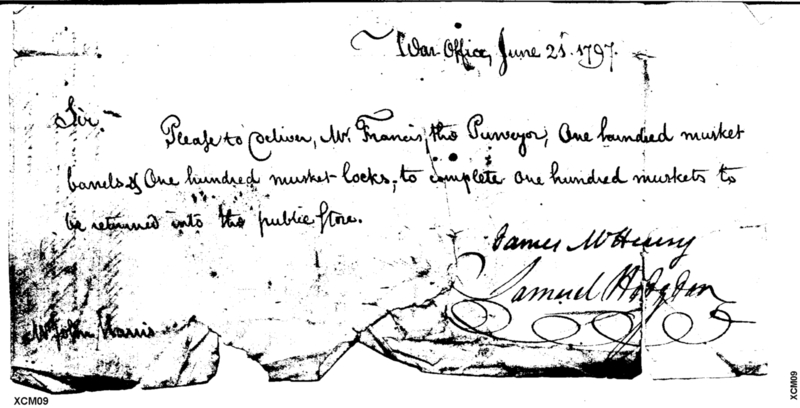 War Office, June 21. 1797.
Sir,
Please to deliver, Mr. Francis, the Purveyor, One hundred musket
barrels & One hundred musket-locks, to complete one hundred muskets to
be returned into the public store.
James McHenry
Samuel Hodgdon
Mr John Harris
XCM09
XCM09